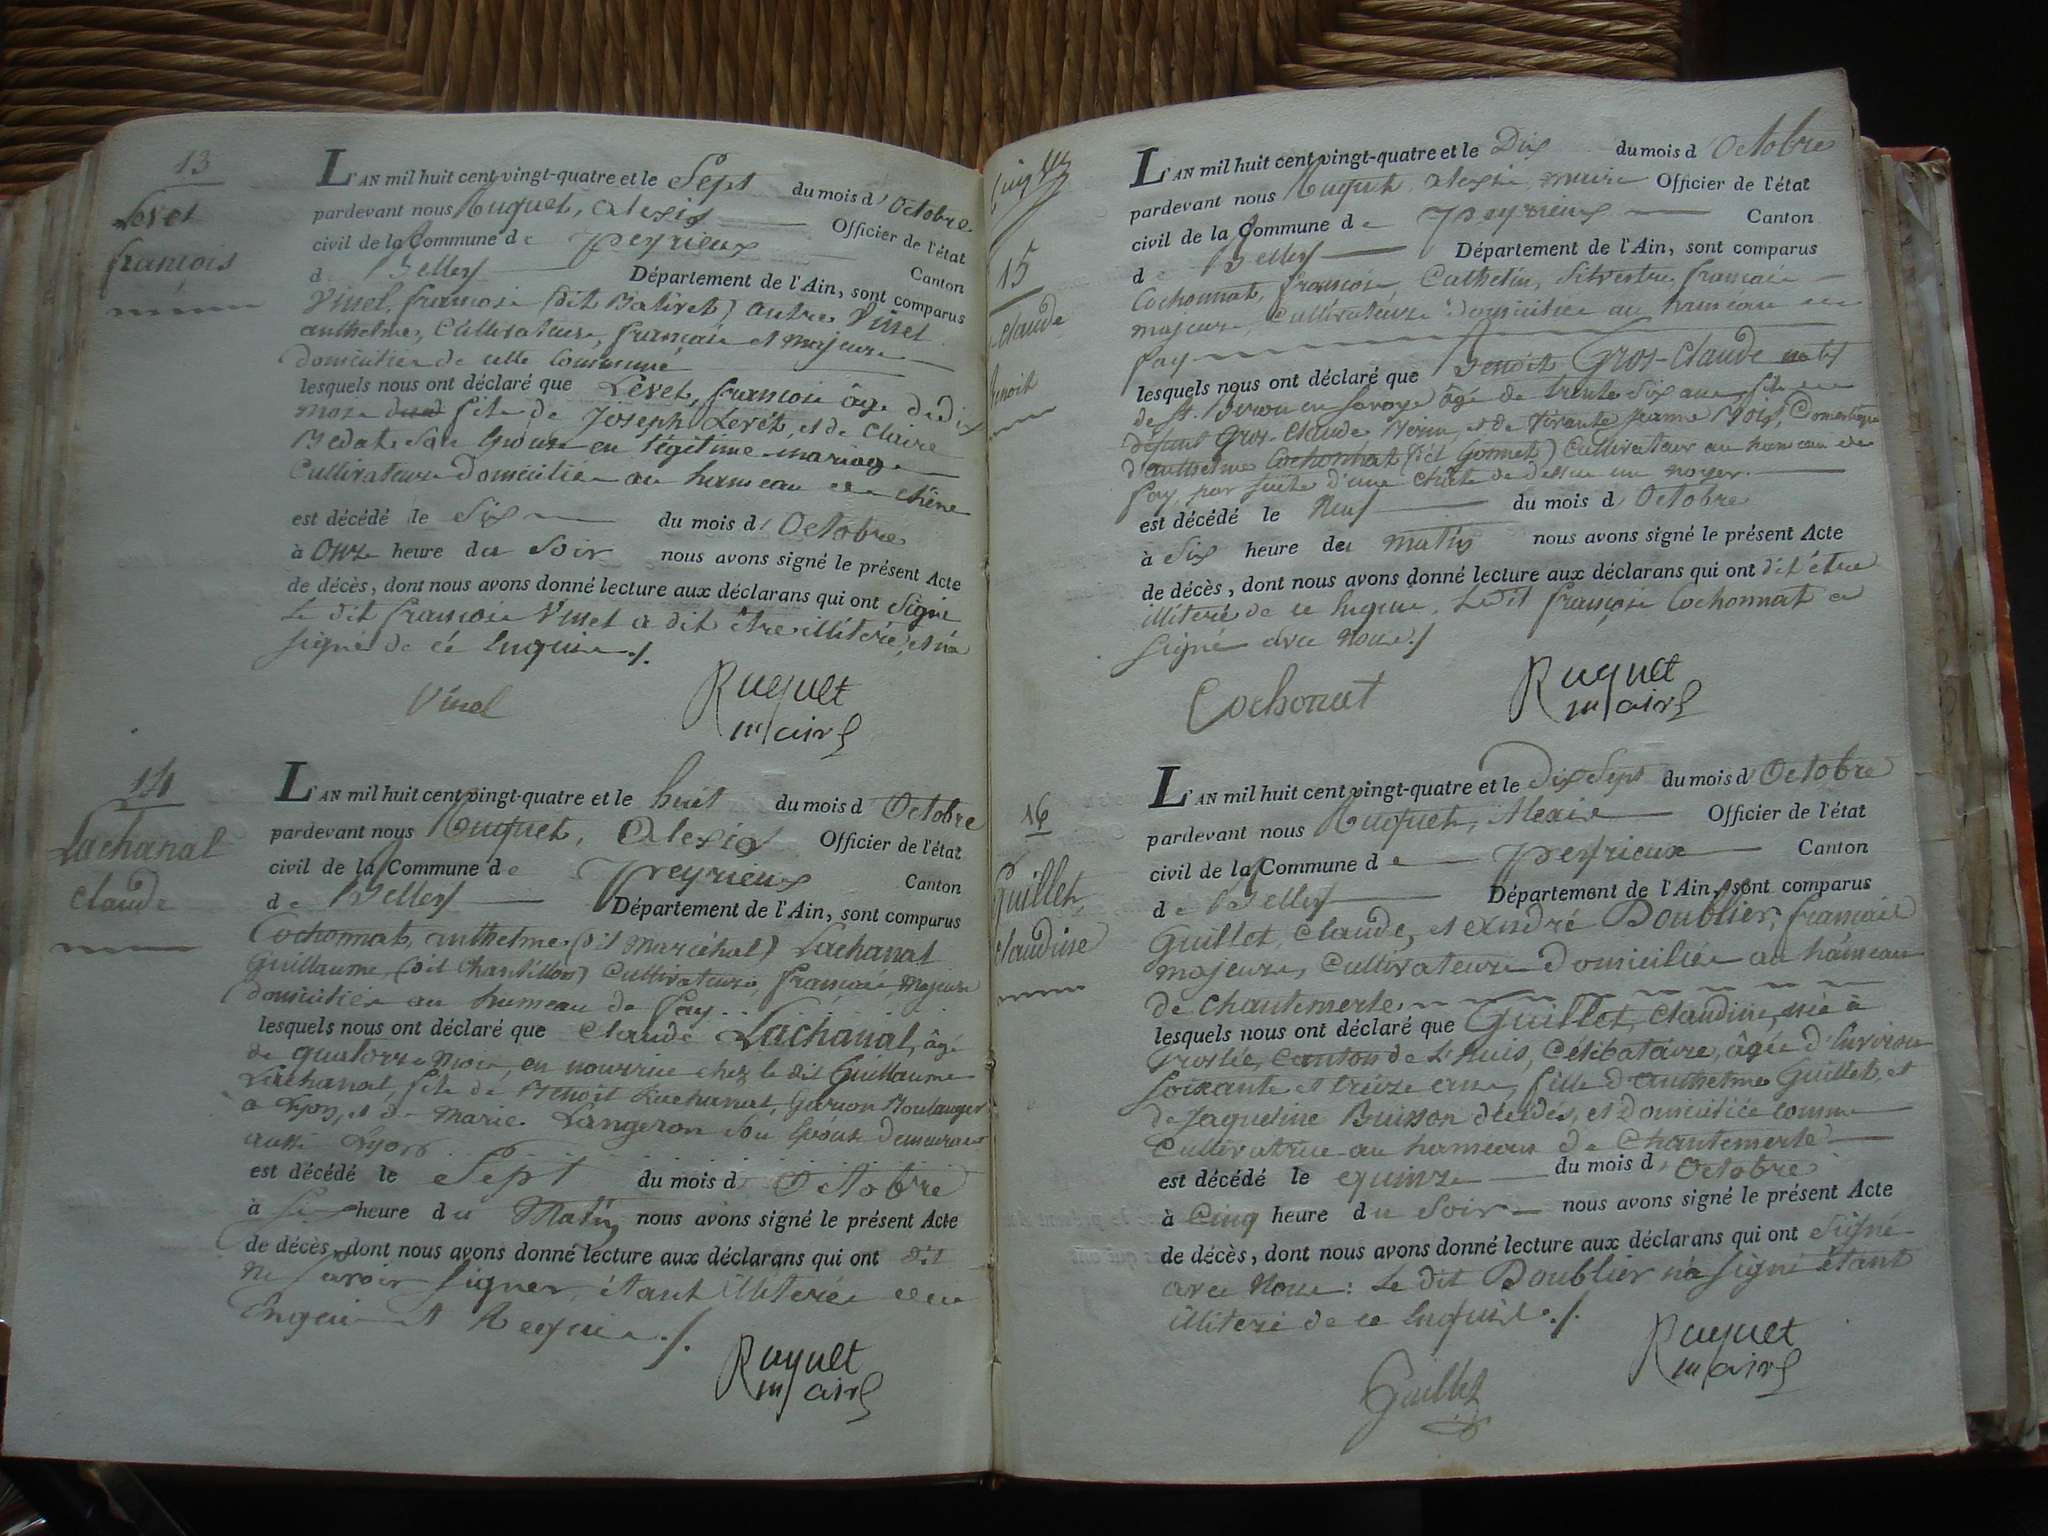 13
Levet
françois
L'AN mil huit cent vingt-quatre et le Sept du mois d' Octobre
pardevant nous Ruquet, alexis Officier de l'état
civil de la Commune de Peyrieux Canton
de Belley Département de l'Ain, sont comparus
Vinel, françois (dit Batiret) autre Vinel
anthelme, Cultivateurs, français et majeurs
domiciliés de cette Commune
lesquels nous ont déclaré que Levet, françois âgé de dix
mois fils de Joseph Levet, et de Claire
Bedat son épouse en légitime mariage
Cultivateurs domiciliés au hameau de chêne
est décédé le Six du mois d' Octobre
à Onze heure du Soir nous avons signé le présent Acte
de décès, dont nous avons donné lecture aux déclarans qui ont Signé
Le dit françois Vinel a dit être illitéré, et n'a
signé de ce Enquis ./.
Vinel
Ruquet
maire
14
Lachanal
Claude
L'AN mil huit cent vingt-quatre et le huit du mois d' Octobre
pardevant nous Ruquet, Alexis Officier de l'état
civil de la Commune de Peyrieux Canton
de Belley Département de l'Ain, sont comparus
Cochonnat, anthelme (dit Maréchal) Lachanal
Guillaume (dit Chantillon) Cultivateurs, français, majeurs
domiciliés au hameau de Fay
lesquels nous ont déclaré que Claude Lachanal, âgé
de quatorze mois, en nourrice chez le dit Guillaume
Lachanal, fils de Benoît Lachanal, Garçon Boulanger
à Lyon, et de Marie Langeron son épouse demeurant
aussi Lyon
est décédé le Sept du mois d' Octobre
à Six heure du Matin nous avons signé le présent Acte
de décès, dont nous avons donné lecture aux déclarans qui ont dit
ne savoir signer, étant illitérés de ce
Enquis et Requis ./.
Ruquet
maire
15
Claude
Benoit
L'AN mil huit cent vingt-quatre et le Dix du mois d' Octobre
pardevant nous Ruquet, alexis maire Officier de l'état
civil de la Commune de Peyrieux Canton
de Belley Département de l'Ain, sont comparus
Cochonnat, françois, Cathelin, Silvestre, français
majeurs, Cultivateurs domiciliés au hameau de
Fay
lesquels nous ont déclaré que Benoit Gros-Claude natif
de St. en Savoye âgé de trente six ans fils de
défunt Gros-Claude et de vivante Jeanne Domestique
d'anthelme Cochonnat (dit Gonnet) Cultivateur au hameau de
Fay, par suite d'une chute de dessus un noyer.
est décédé le Neuf du mois d' Octobre
à Six heure du matin nous avons signé le présent Acte
de décès, dont nous avons donné lecture aux déclarans qui ont dit être
illitéré de ce Enquis, Ledit françois Cochonnat a
Signé avec Nous ./
Cochonat
Ruquet
maire
16
Guillet,
Claudine
L'AN mil huit cent vingt-quatre et le Dix Sept du mois d' Octobre
pardevant nous Ruquet, Alexis Officier de l'état
civil de la Commune de Peyrieux Canton
de Belley Département de l'Ain, sont comparus
Guillet, Claude, et André Doublier, français
majeurs, Cultivateurs domiciliés au hameau
de Chantemerle
lesquels nous ont déclaré que Guillet, Claudine, née à
Groslée, Canton de L'huis, Célibataire, âgée d'Environ
Soixante et treize ans, fille d'anthelme Guillet, et
de Jaqueline Buisson décédés, et Domiciliée comme
Cultivatrice au hameau de Chantemerle
est décédé le quinze du mois d' Octobre
à Cinq heure du Soir nous avons signé le présent Acte
de décès, dont nous avons donné lecture aux déclarans qui ont Signé
avec Nous : Le dit Doublier n'a signé étant
illitéré de ce Enquis ./.
Guillet
Ruquet
maire